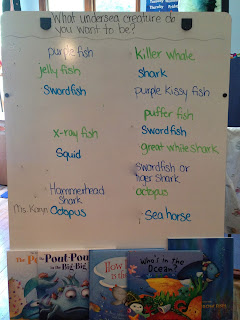 What undersea creature do
you want to be?
purple fish
jelly fish
Swordfish
x-ray fish
Squid
Hammerhead
shark
Ms. Karyn Octopus
Killer whale
shark
purple Kissy fish
puffer fish
Swordfish
great white shark
swordfish or
tiger shark
octopus
Sea horse
The Pout-Pout
in the Big-Big
How
is the
Who's In The
Ocean?